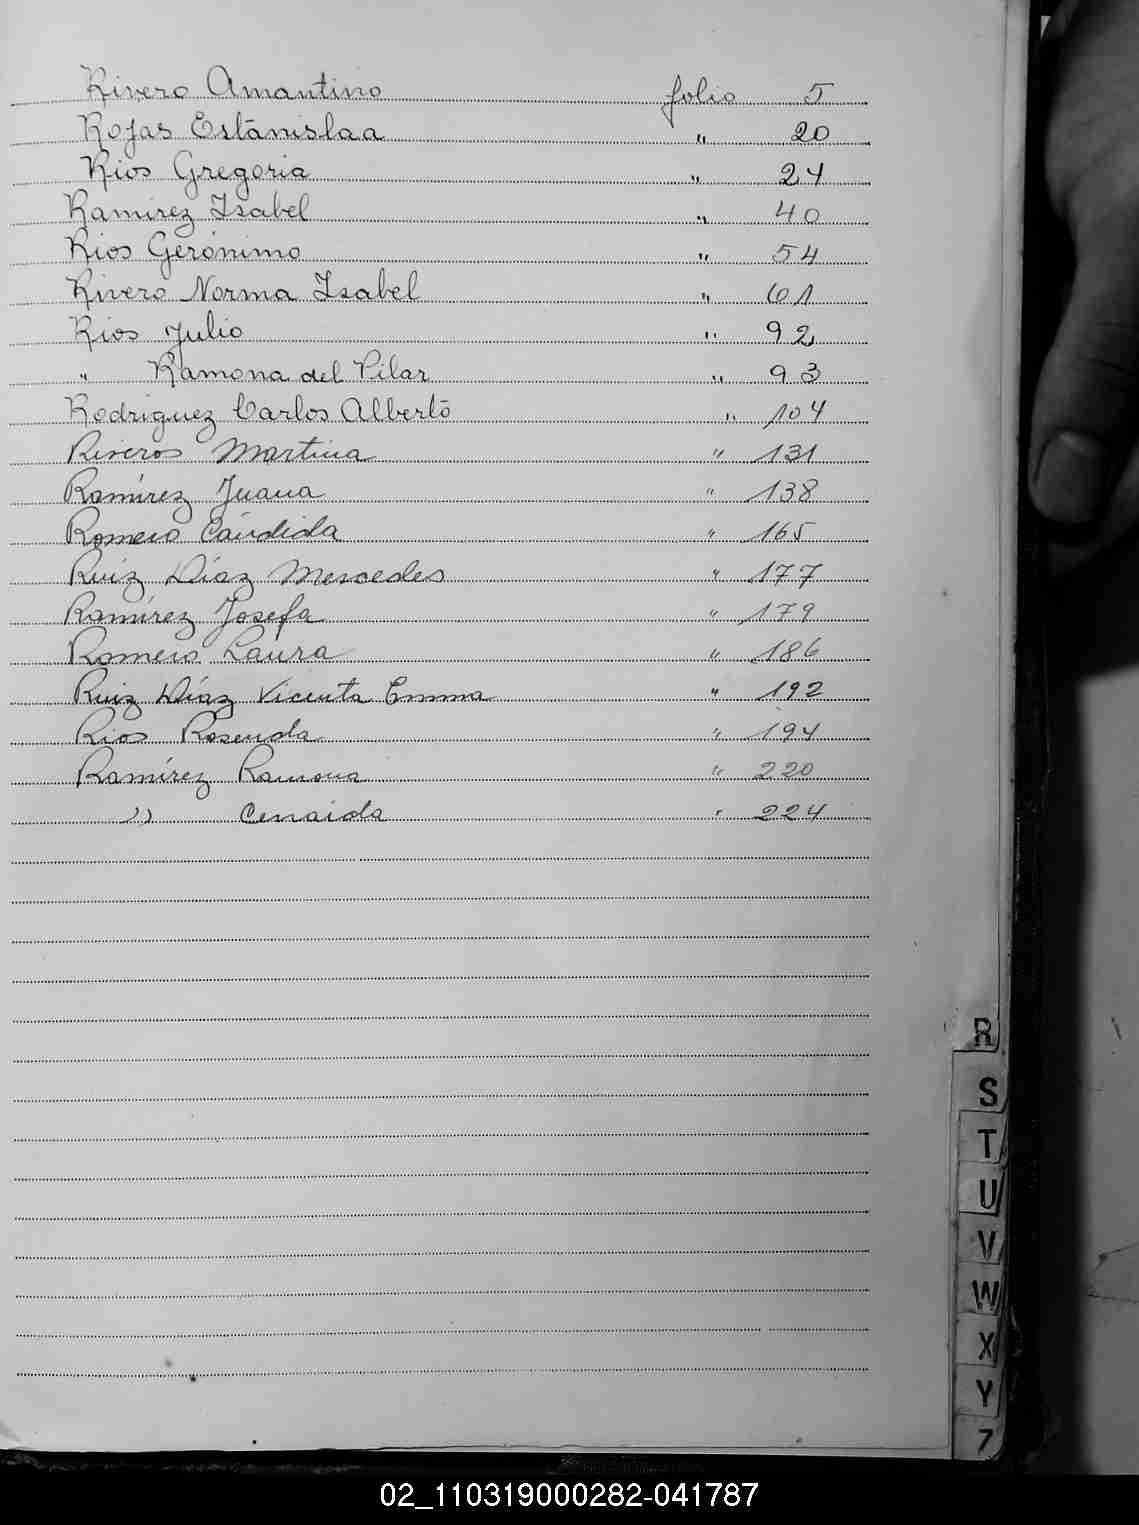 Rivero Amantino folio 5
Rojas Estanislaa " 20
Rios Gregoria " 24
Ramirez Isabel " 40
Rios Gerónimo " 54
Rivero Norma Isabel " 61
Rios Julio " 92
" Ramona del Pilar " 93
Rodriguez Carlos Alberto " 104
Riveros Martina " 131
Ramírez Juana " 138
Romero Cándida " 165
Ruiz Díaz Mercedes " 177
Ramírez Josefa " 179
Romero Laura " 186
Ruiz Díaz Vicenta Emma " 192
Rios Rosenda " 194
Ramírez Ramona " 220
" Cenaida " 224
R
S
T
U
V
W
X
Y
Z
02_110319000282-041787